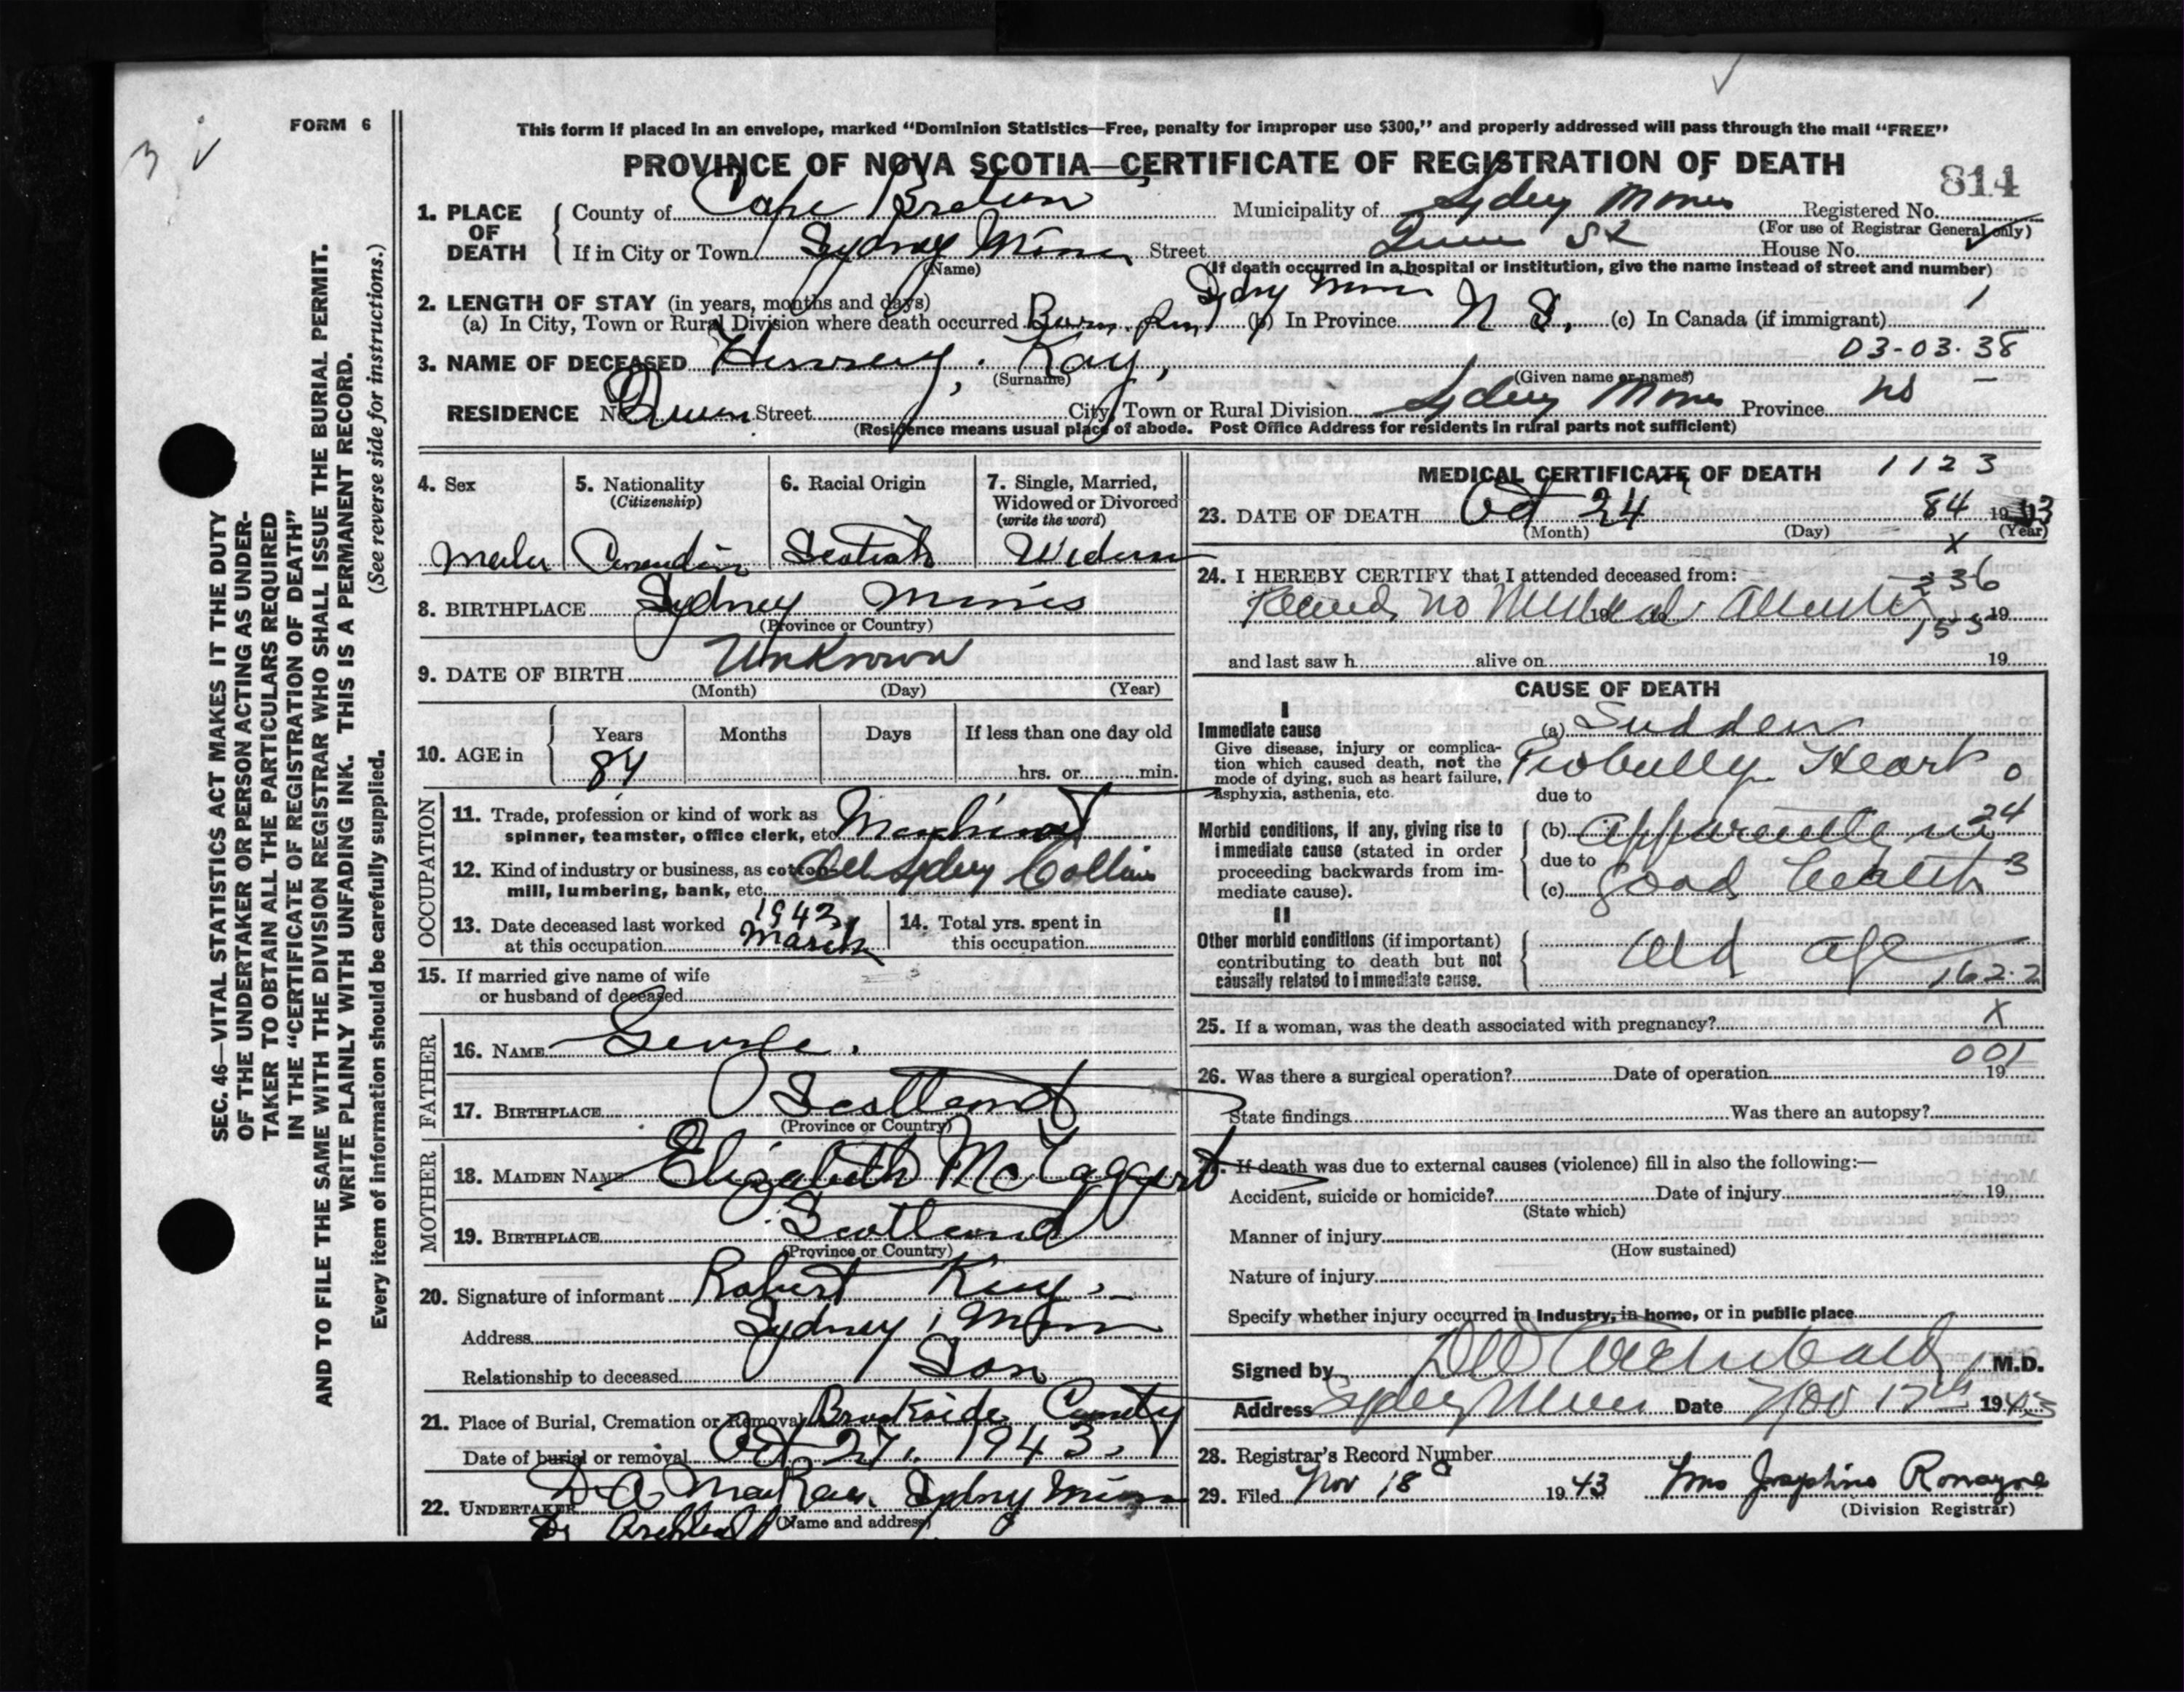 FORM 6
3
This form if placed in an envelope, marked “Dominion Statistics—Free, penalty for improper use $300,” and properly addressed will pass through the mail “FREE”
PROVINCE OF NOVA SCOTIA—CERTIFICATE OF REGISTRATION OF DEATH
814
1. PLACE OF DEATH County of Cape Breton Municipality of Sydney Mines Registered No.
(For use of Registrar General only)
If in City or Town Sydney Mines Street Queen St House No.
(Name) (If death occurred in a hospital or institution, give the name instead of street and number)
2. LENGTH OF STAY (in years, months and days) Sydny Mines 1
(a) In City, Town or Rural Division where death occurred (b) In Province N S. (c) In Canada (if immigrant)
03-03-38
3. NAME OF DECEASED Henrery. Kay,
(Surname) (Given name or names)
RESIDENCE No Queen Street City, Town or Rural Division Sydney Mines Province NS —
(Residence means usual place of abode. Post Office Address for residents in rural parts not sufficient)
4. Sex 5. Nationality (Citizenship) 6. Racial Origin 7. Single, Married, Widowed or Divorced (write the word)
Canadian Scotish
8. BIRTHPLACE Sydney Mines
(Province or Country)
9. DATE OF BIRTH Unknown
(Month) (Day) (Year)
10. AGE in Years Months Days If less than one day old
84 hrs. or min.
OCCUPATION
11. Trade, profession or kind of work as
spinner, teamster, office clerk, etc.
12. Kind of industry or business, as cotton
mill, lumbering, bank, etc.
13. Date deceased last worked 1943 14. Total yrs. spent in
at this occupation March this occupation
15. If married give name of wife
or husband of deceased
FATHER
16. NAME George.
17. BIRTHPLACE Scotland
(Province or Country)
MOTHER
18. MAIDEN NAME Elizabeth McTaggert
19. BIRTHPLACE Scotland
(Province or Country)
20. Signature of informant Robert Kay
Address Sydney Mines
Relationship to deceased Son
21. Place of Burial, Cremation or Removal Brookside
Date of burial or removal Oct 27, 1943,
22. UNDERTAKER D. A. Sydney Mines
(Name and address)
MEDICAL CERTIFICATE OF DEATH 1123
23. DATE OF DEATH Oct 24 84 19
(Month) (Day) (Year)
X
24. I HEREBY CERTIFY that I attended deceased from: 236
no Medical 19 19
155
and last saw h alive on 19
CAUSE OF DEATH
I
Immediate cause (a) Sudden
Give disease, injury or complica-
tion which caused death, not the
mode of dying, such as heart failure,
asphyxia, asthenia, etc.
Probally Heart 0
due to
24
Morbid conditions, if any, giving rise to
immediate cause (stated in order
proceeding backwards from im-
mediate cause).
(b) apparently in
due to
(c) good health 3
II
Other morbid conditions (if important)
contributing to death but not
causally related to immediate cause.
Old age
162.2
25. If a woman, was the death associated with pregnancy? X
001
26. Was there a surgical operation? Date of operation 19
State findings Was there an autopsy?
If death was due to external causes (violence) fill in also the following:—
Accident, suicide or homicide? Date of injury 19
(State which)
Manner of injury
(How sustained)
Nature of injury
Specify whether injury occurred in Industry, in home, or in public place
Signed by D W Archibald M.D.
Address Sydney Mines Date Nov 17th 1943
28. Registrar’s Record Number
29. Filed Nov 18 1943 Mrs Josephine Ronayne
(Division Registrar)
SEC. 46—VITAL STATISTICS ACT MAKES IT THE DUTY
OF THE UNDERTAKER OR PERSON ACTING AS UNDER-
TAKER TO OBTAIN ALL THE PARTICULARS REQUIRED
IN THE “CERTIFICATE OF REGISTRATION OF DEATH”
AND TO FILE THE SAME WITH THE DIVISION REGISTRAR WHO SHALL ISSUE THE BURIAL PERMIT.
WRITE PLAINLY WITH UNFADING INK. THIS IS A PERMANENT RECORD.
Every item of information should be carefully supplied. (See reverse side for instructions.)